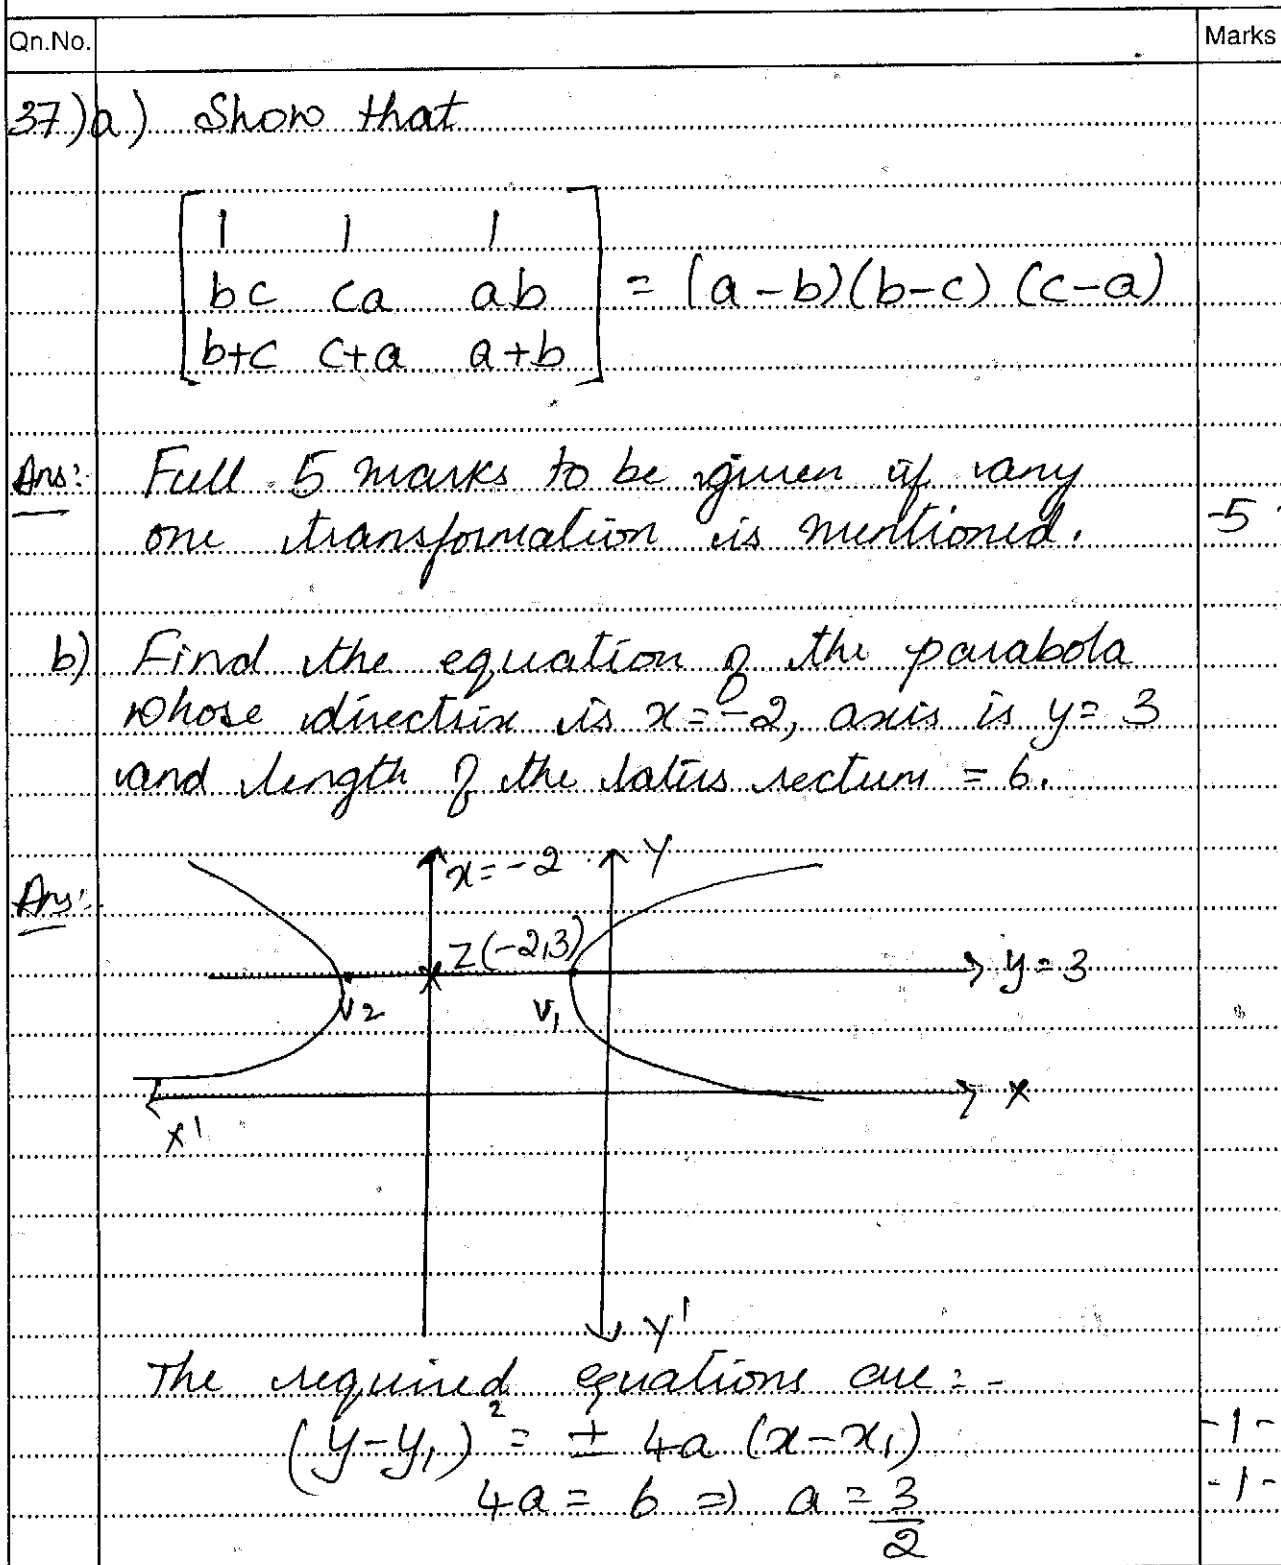 Qn.No. Marks
37) a) Show that
1 1 1
bc ca ab = (a-b)(b-c) (c-a)
b+c c+a a+b
Ans: Full 5 marks to be given if any
one transformation is mentioned. -5
b) Find the equation of the parabola
whose directrix is x=-2, axis is y= 3
and length of the latus rectum = 6.
Ans:
x=-2 Y
Z(-2,3)
y=3
V2 V1
X
X'
Y'
The required equations are:-
(y-y₁)² = ± 4a (x-x₁) -1-
4a = 6 ⇒ a = 3/2 -1-